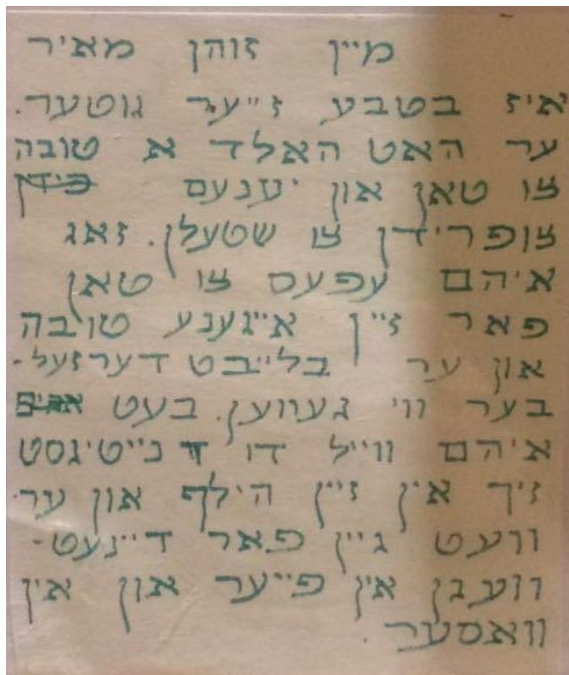 מיין זוהן מאיר
איז בטבע זייער גוטער.
ער האט האלד א טובה
צו טאן און יענעם
צופרידן צו שטעלן. זאג
איהם עפעס צו טאן
פאר זיין אייגענע טובה
און ער בלייבט דערזעל-
בער ווי געווען. בעט
איהם ווייל דו נייטיגסט
זיך אין זיין הילף און ער
וועט גיין פאר דיינעט-
וועגן אין פייער און אין
וואסער.